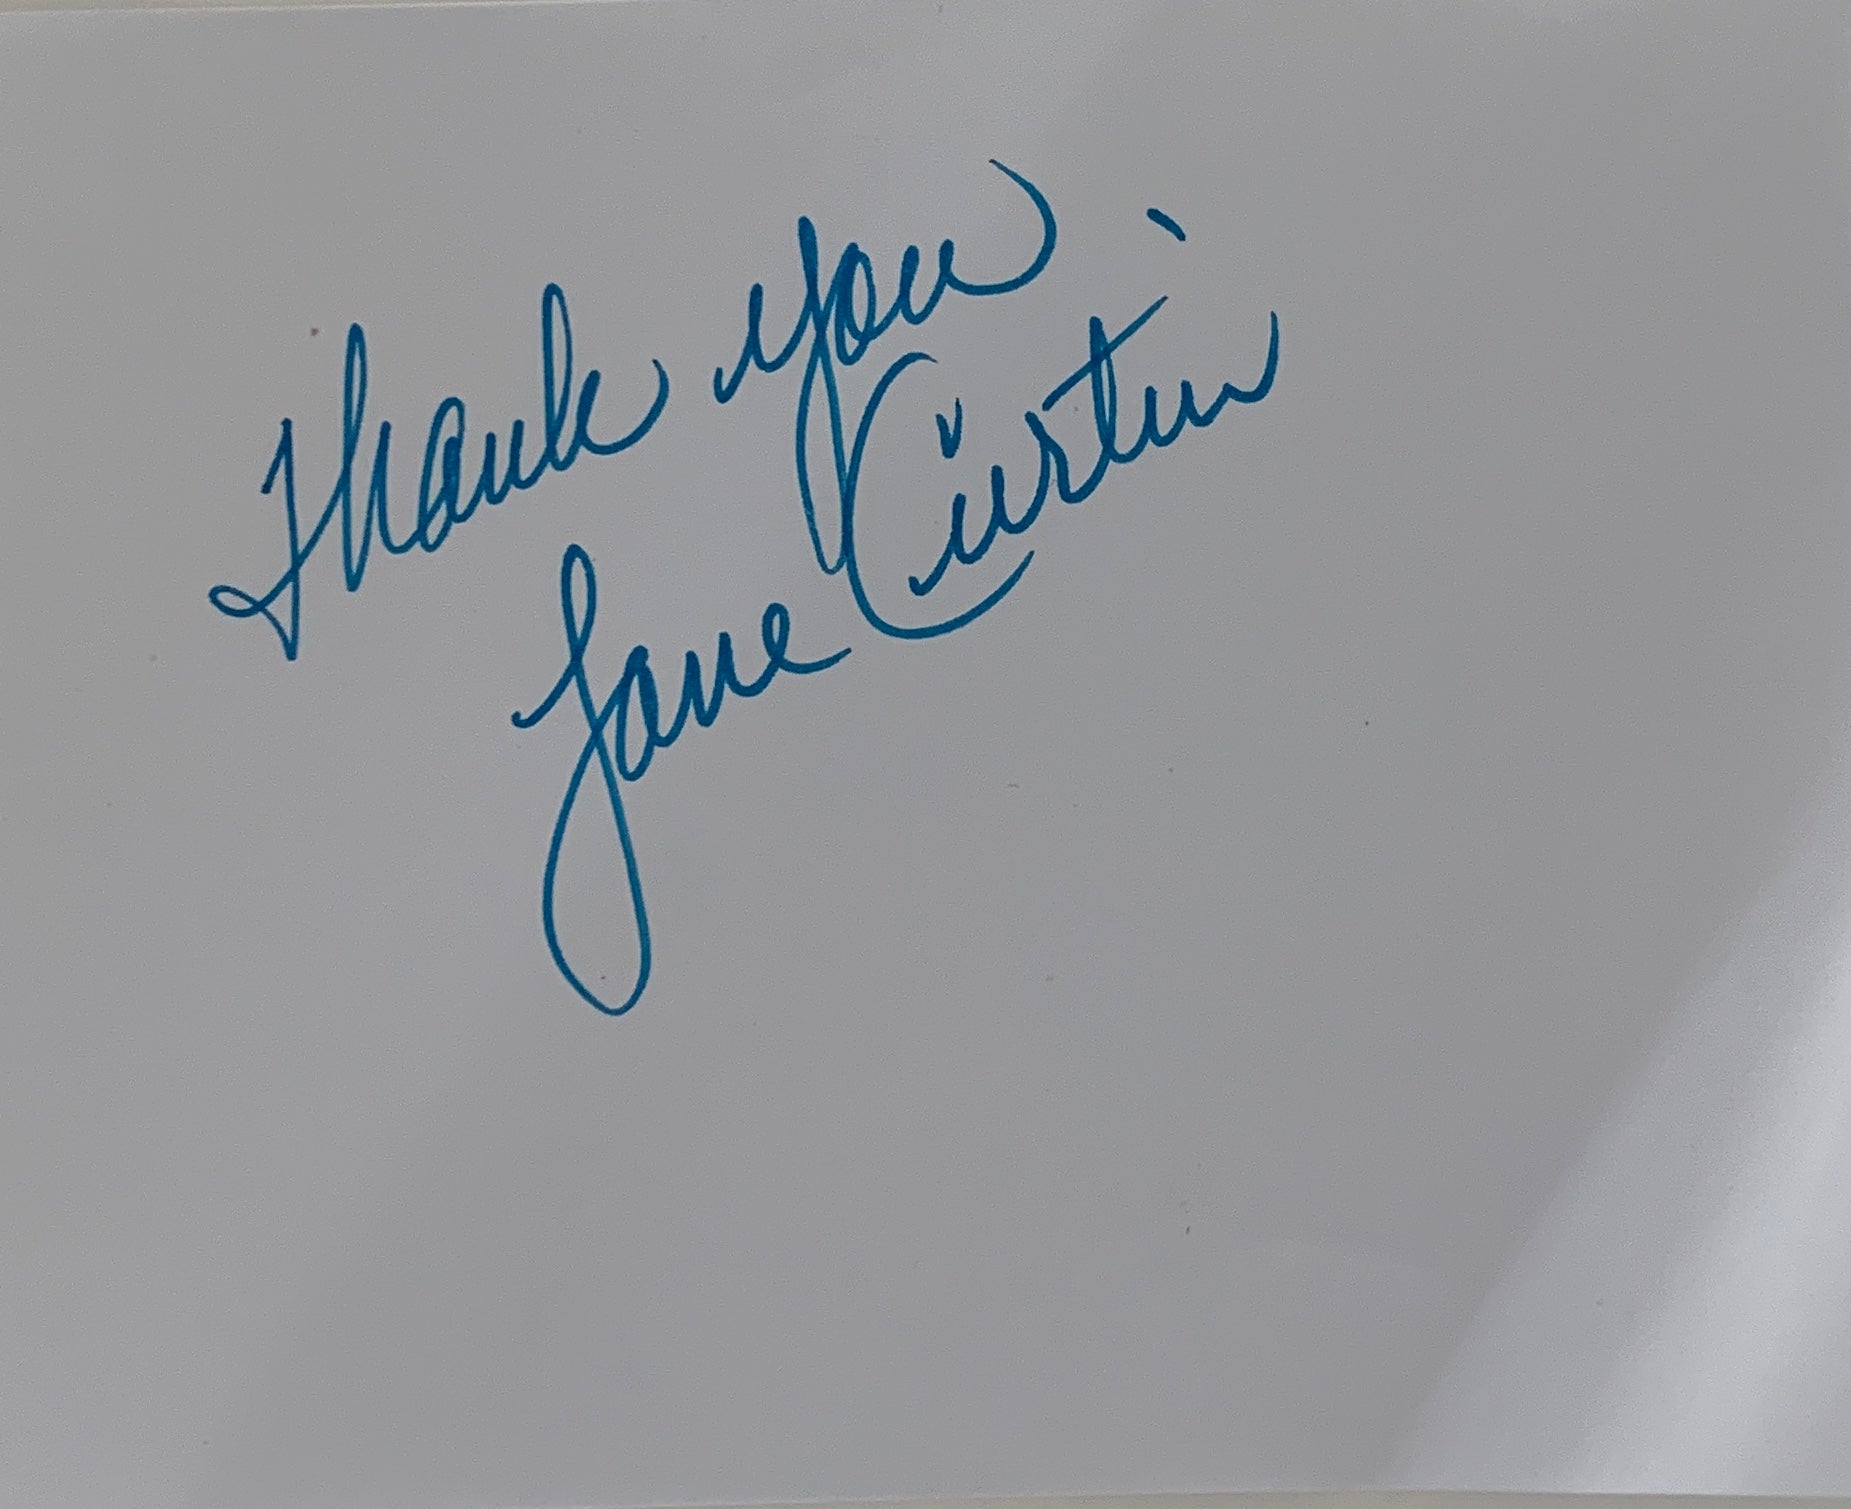 Thank you
Jane Curtin